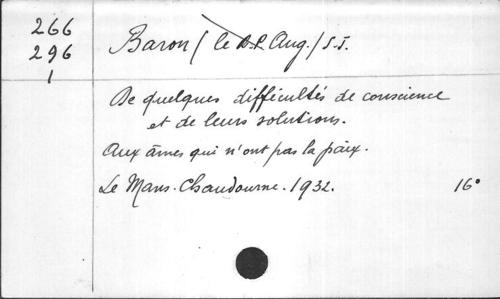 266
296
1
Baron / le R.P. Aug. / S.J.
De quelques difficultés de conscience
et de leurs solutions.
Aux âmes qui n'ont pas la paix.
Le Mans. Chaudourne. 1932. 16°